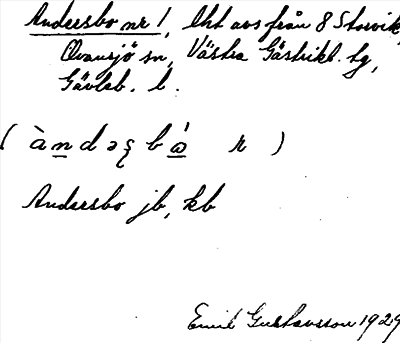 Andersbo nr 1, lht avs från 8 Storvik,
Ovansjö sn, Västra Gästrikl. tg,
Gävleb. l.
(àndəş bå̀ r)
Andersbo jb, kb
Emil Gustavsson 1929